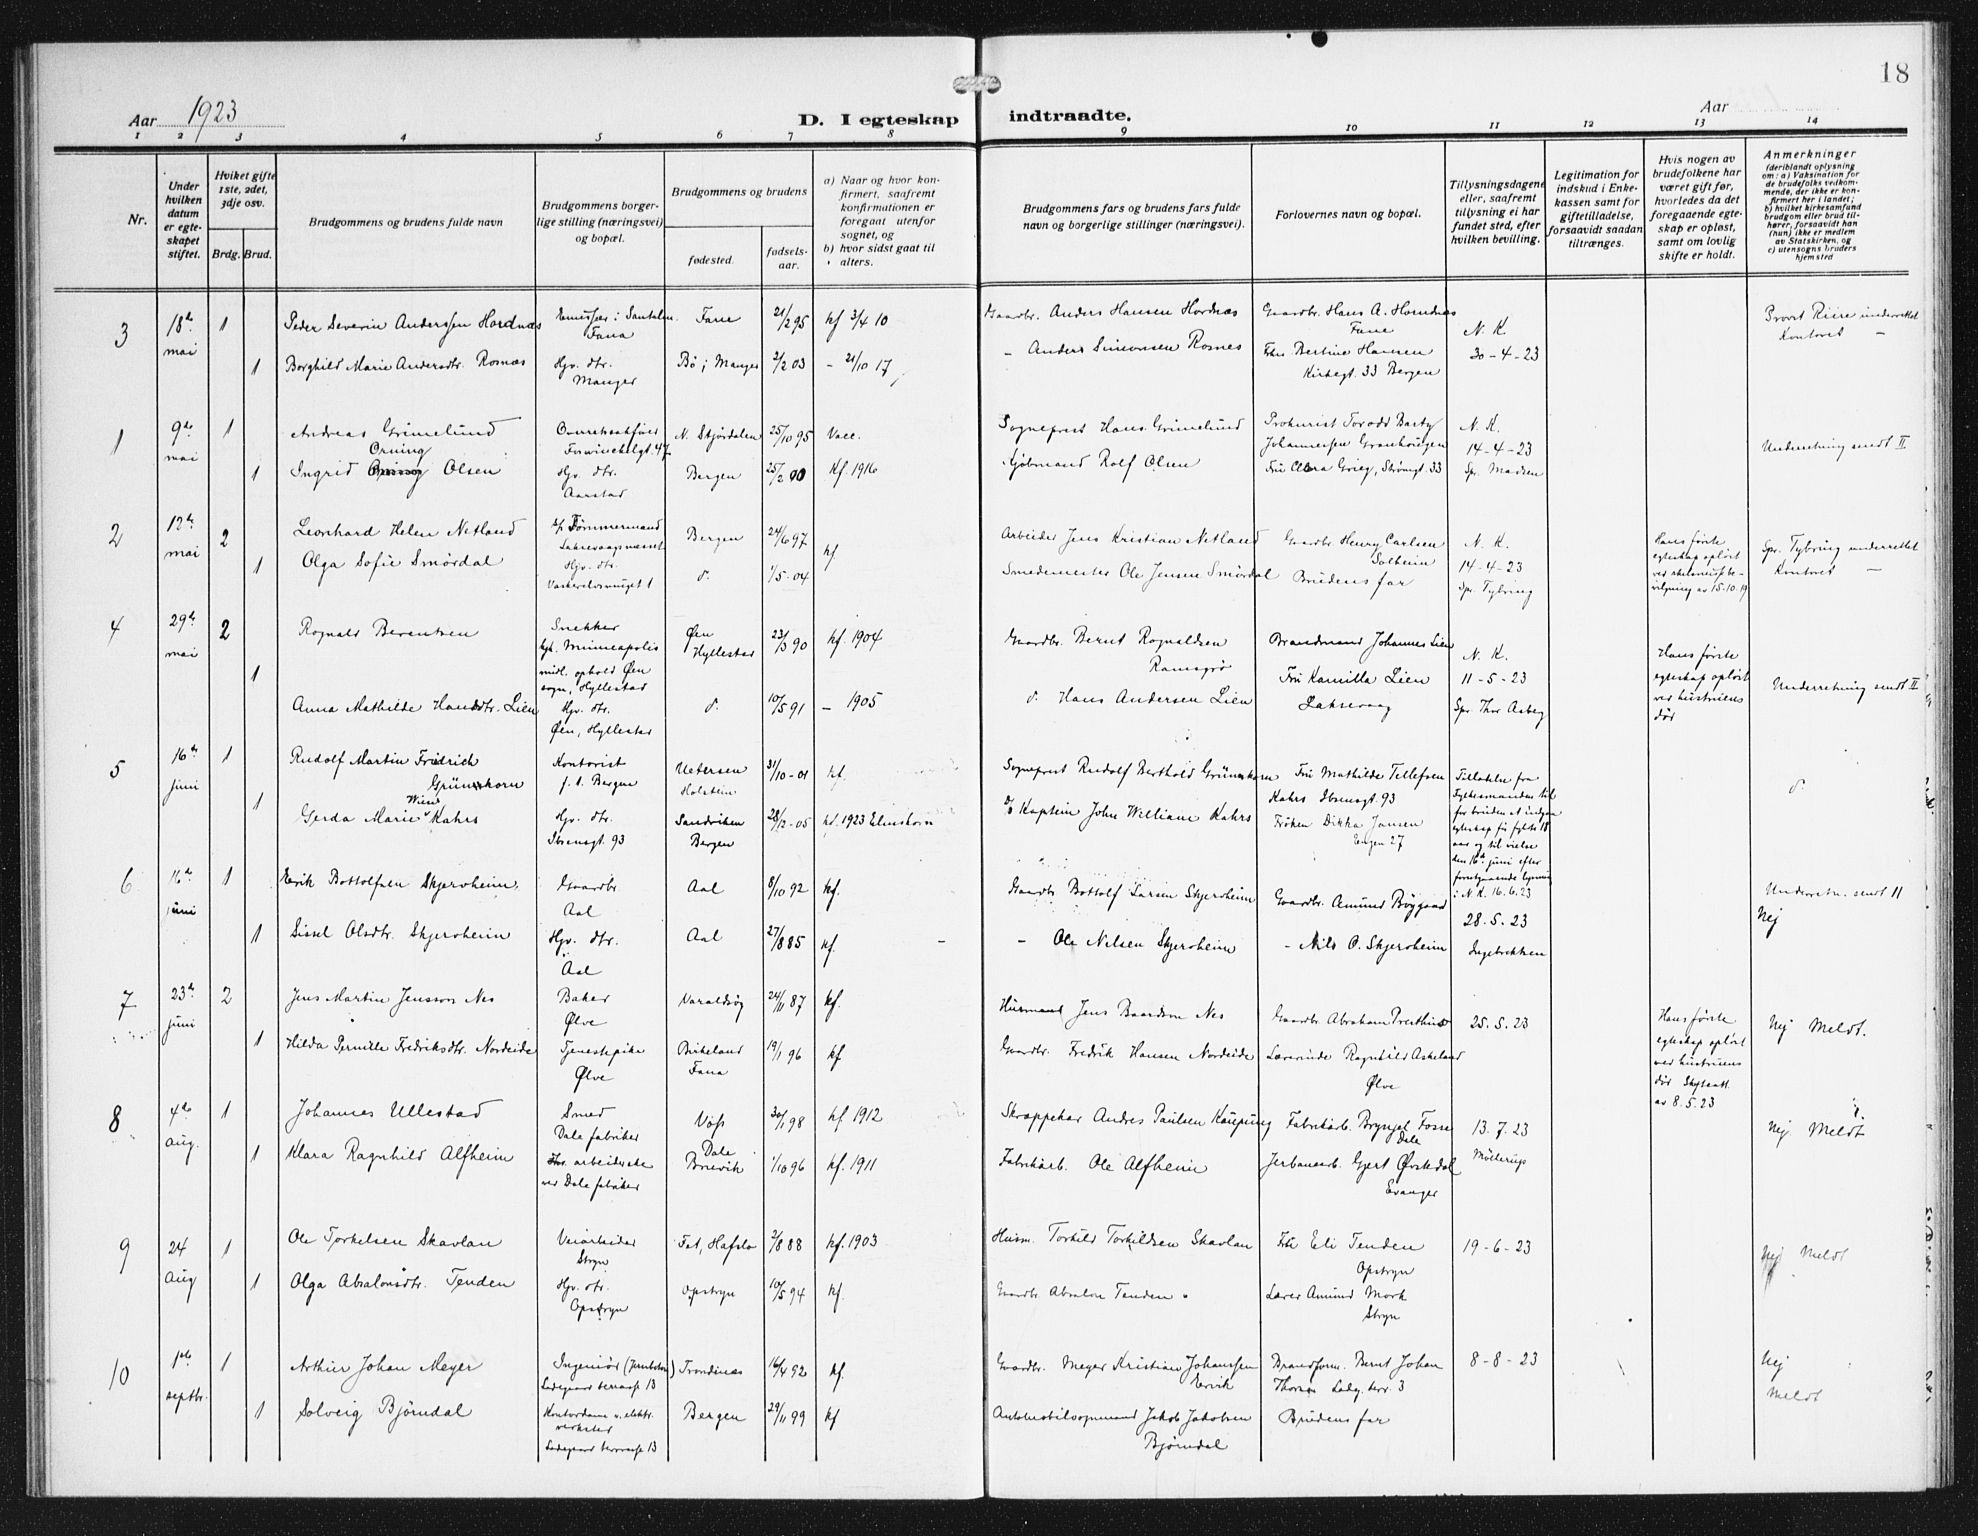 18
Aar 1923
D. I egteskap indtraadte.
Aar
1 2 3 4 5 6 7 8 9 10 11 12 13 14
Nr.
Under hvilken datum er egteskapet stiftet.
Hvilket gifte 1ste, 2det, 3dje osv.
Brdg. Brud.
Brudgommens og brudens fulde navn
Brudgommens borgerlige stilling (næringsvei) og bopæl.
Brudgommens og brudens
fødested.
fødselsaar.
a) Naar og hvor konfirmert, saafremt konfirmationen er foregaat utenfor sognet, og
b) hvor sidst gaat til alters.
Brudgommens fars og brudens fars fulde navn og borgerlige stillinger (næringsvei).
Forlovernes navn og bopæl.
Tillysningsdagene eller, saafremt tillysning ei har fundet sted, efter hvilken bevilling.
Legitimation for indskud i Enkekassen samt for giftetilladelse, forsaavidt saadan tiltrænges.
Hvis nogen av brudefolkene har været gift før, hvorledes da det foregaaende egteskap er opløst, samt om lovlig skifte er holdt.
Anmerkninger
(deriblandt oplysning om: a) Vaksination for de brudefolks vedkommende, der ikke er konfirmert her i landet;
b) hvilket kirkesamfund brudgom eller brud tilhører, forsaavidt han (hun) ikke er medlem av Statskirken, og
c) utensogns bruders hjemsted
3 18de mai 1 Peder Severin Anderssen Hordnæs
Fana
Fane 21/2 95 kf 3/4 10
Gaardbr. Anders Hansen Hordnæs
Gaardbr. Hans A. Hordnæs
Fane
N. K.
30-4-23
Provst Riise underrettet
Kontoret
1 Borghild Marie Andersdtr. Rosnæs
Hjv. dtr.
Manger
Bø i Manger 2/2 03 - 21/10 17
- Anders Simonsen Rosnes
Frk. Bertine Hansen
Kirkegt. 33 Bergen
1 9de mai 1 Andreas Grimelund
N. Stjørdalen 25/10 95 Vacc.
Sogneprest Hans Grimelund
Prokurist Torodd Barty
N. K.
14-4-23
Spr. Madsen
Underretning sendt II
Orning
1 Ingrid Olsen
Hjv. dtr.
Aarstad
Bergen Kf. 1916
Kjøbmand Rolf Olsen
Fru Clara Grieg, Strømgt. 33
2 12te mai 2 Leonhard Helen Netland
Tømmermand
Laksevaagsnæsset
Bergen 24/6 97
Arbeider Jens Kristian Netland
Gaardbr. Henry Carlsen
Solheim
N. K.
14-4-23
Spr. Tybring
Hans første
egteskap opløst
ved skilsmissebe-
vilgning av 15.10.19
Spr. Tybring underrettet
Kontoret
1 Olga Sofie Smørdal
Hjv. dtr.
d. 1/5-04 kf
Smedemester Ole Jensen Smørdal
Brudens far
4 29de mai 2 Rognald Berentsen
Snekker
Minneapolis
midl. ophold Øen
sogn, Hyllestad
Øen
Hyllestad
23/3 90 kf. 1904
Gaardbr. Bernt Rognaldsen
Ramsgrø
Brandmand Johannes Lien
N. K.
11-5-23
Spr. Thor Aasberg
Hans første
egteskap opløst
ved hustruens
død
Underretning sendt II
1 Anna Mathilde Hansdtr. Lien
Hjv. dtr.
Øen, Hyllestad
d. 10/5 91 - 1905
d. Hans Andersen Lien
Fru Kamilla Lien
Laksevaag
5 16de juni 1 Rudolf Martin Friedrich
Grünenhorn
Kontorist
f. t. Bergen
Uetersen
Holstein
31/10-01 kf.
Sogneprest Rudolf Berthold Grünenhorn
Fru Mathilde Tellefsen
Kahrs Ibsensgt. 93
Tilladelse fra
Fylkesmanden til
for bruden at indgaa
egteskap før fylte 18
aar og til vielse
den 16de juni efter
foregaaende lysning
i N. K. 16.6.23
d.
Wiese
1 Gerda Marie Kahrs
Hjv. dtr.
Ibsensgt. 93
Sandviken
Bergen
28/2-05 kf. 1923 Elmshorn
Kaptein John William Kahrs
Frøken Dikka Jansen
Engen 27
6 16de juni 1 Eirik Bottolfsen Skjervheim.
Gaardbr.
Aal
Aal 8/10 92 kf.
Gaardbr. Bottolf Larsen Skjervheim
Gaardbr. Amund Bryggaad
28-5-23
Ingebrektsen
Underretn. sendt II
Nej
1 Sissel Olsdtr. Skjervheim
Hjv. dtr.
Aal
Aal 27/8 85 kf.
- Ole Nilsen Skjervheim
- Nils O. Skjervheim
7 23de juni 2 Jens Martin Jensson Nes
Baker
Ølve
Varaldsøy 24/11 87 kf.
Husmand Jens Baardson Nes
Gaardbr. Abraham Presthus
25.5.23
Hans første
egteskap opløst
ved hustruens
død Skifteatt.
av 8.5.23
Nej Meldt.
1 Hilda Pernille Fredriksdtr. Nordeide
Tjenestepike
Ølve
Birkeland
Fana
19/1 96 kf
Gaardbr. Fredrik Hansen Nordeide
Lærerinde Ragnhild Askeland
Ølve
8 4de aug. 1 Johannes Ullestad
Smed
Dale fabriker
Voss 30/1 98 kf. 1912
Skræppekar Andres Paulsen Kaupung
Fabrikarb. Brynjel Fosse
Dale
13.7.23
Møllerup
Nej. Meldt
1 Klara Ragnhild Alfheim
arbeiderske
ved Dale fabriker
Dale
Bruvik
1/10 96 kf. 1911
Fabrikarb. Ole Alfheim
Jernbanearb. Gjert Øvstedal
Evanger
9 24 Aug 1 Ole Torkelsen Skavlan
Veiarbeider
Stryn
Fet, Hafslo 2/8 88 kf. 1903
Husm. Torkild Torkildsen Skavlan
Frk Eli Tenden
Opstryn
19-6-23
Nej Meldt
1 Olga Absalonsdtr. Tenden
Hjv. dtr.
Opstryn
Opstryn 10/5 94 kf.
Gaardbr. Absalon Tenden
Lærer Amund Mork
Stryn
10 1ste septbr. 1 Arthur Johan Meyer
Ingeniør
Ladegaard terrasse 13
Trondenæs 16/4 92 kf.
Gaardbr. Meyer Kristian Johanssen
Ervik
Brandform. Bernt Johan
Ladeg. terr. 3
8-8-23
Nej
Meldt
1 Solveig Bjørndal
Kontordame v. elektr.
verket
Ladegaard terrasse 13
Bergen 29/11 99 kf
Automobilsognmand Jakob Jakobsen
Bjørndal
Brudens far